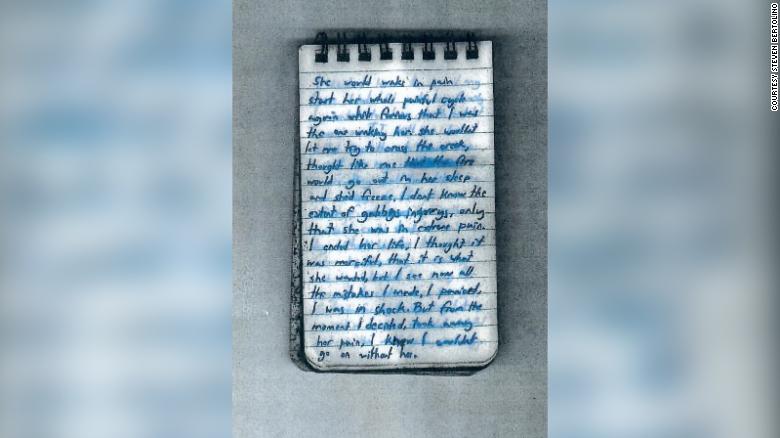 She would wake in pain
start her whole painful cycle
again while furious that I was
the one waking her. she wouldn't
let me try to cross the creek,
thought like me that the fire
would go out in her sleep
and she'd freeze. I dont know the
extent of gabbys injureys, only
that she was in extreme pain.
I ended her life, I thought it
was merciful, that it is what
she wanted, but I see now all
the mistakes I made. I panicked,
I was in shock. But from the
moment I decided, took away
her pain, I knew I wouldnt
go on without her.
COURTESY STEVEN BERTOLINO